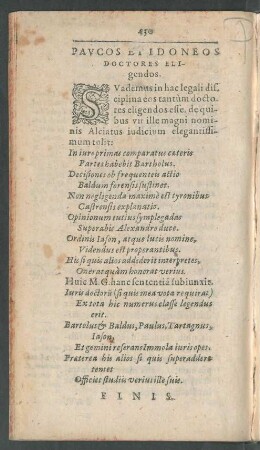 430
PAVCOS ET IDONEOS
DOCTORES ELI-
gendos.
SVademus in hac legali dis
ciplina eos tantùm docto
res eligendos esse, de qui
bus vir ille magni nomi
nis Alciatus iudicium elegantissi
mum tolit:
In iure primas comparatus cæteris
Partes habebit Bartholus.
Decisiones ob frequenteis actio
Baldum forensis sustinet.
Non negligenda maximè est tyronibus
Castrensis explanatio.
Opinionum tutius symplegadas
Superabis Alexandro duce.
Ordinis Iason, atque lucis nomine,
Videndus est properantibus.
His si quis alios addiderit interpretes,
Onerat quàm honorat verius.
Huic M.G. hanc sententiã subiunxit.
Iuris doctorũ (si quis mea vota requirat)
Ex tota hic numerus classe legendus
erit.
Bartolus & Baldus, Paulus, Tartagnus,
Iason,
Et gemini referant Immola iuris opes.
Præterea his alios si quis superaddere
tentet
Officiet studiis verius ille suis.
FINIS.